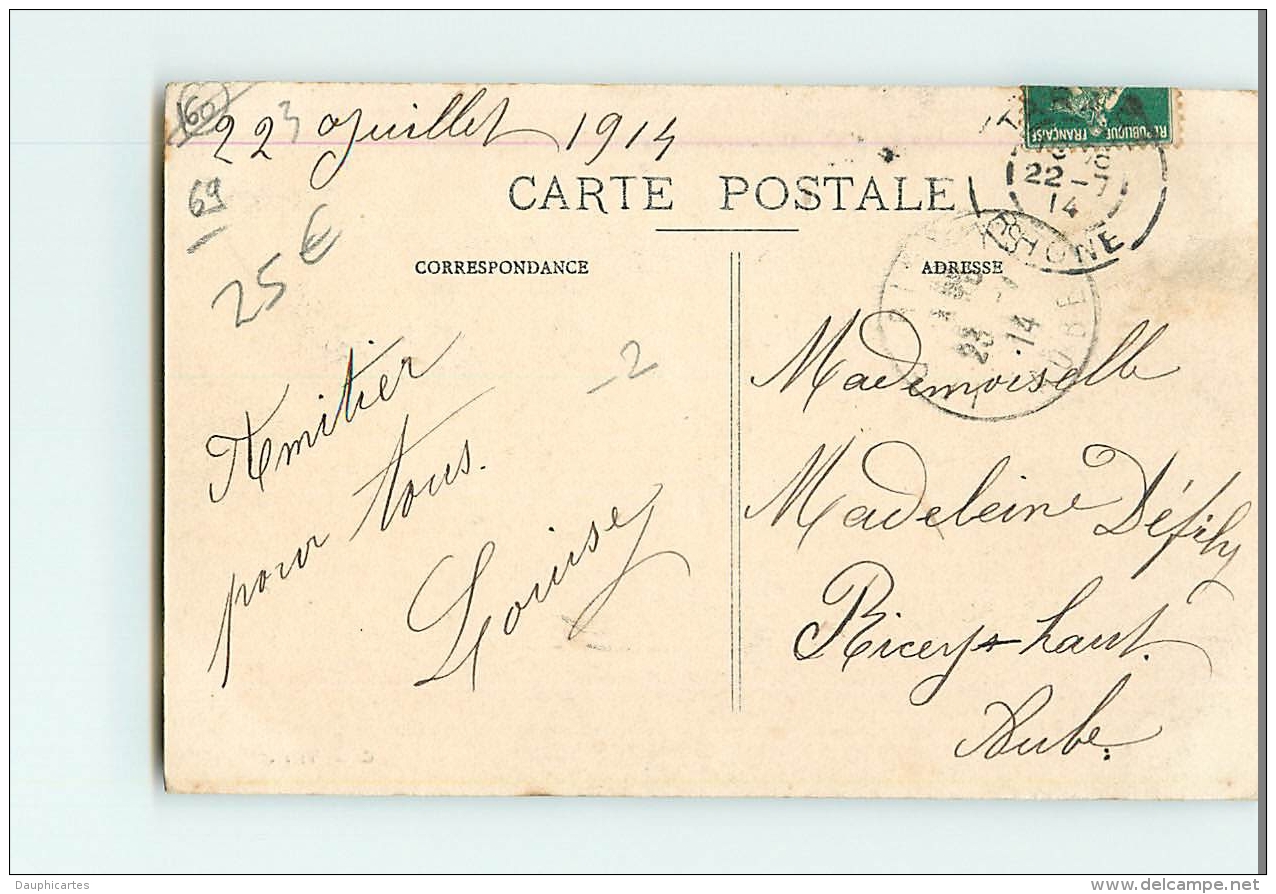 160
22 Juillet 1914
3
69
25 €
CARTE POSTALE
CORRESPONDANCE
ADRESSE
REPUBLIQUE FRANÇAISE
22-7
14
RHONE
23 -7
14
AUBE
-2
Amitier
pour tous.
Louise
Mademoiselle
Madeleine Défily
Riceys haut.
Aube.
Dauphicartes
www.delcampe.net